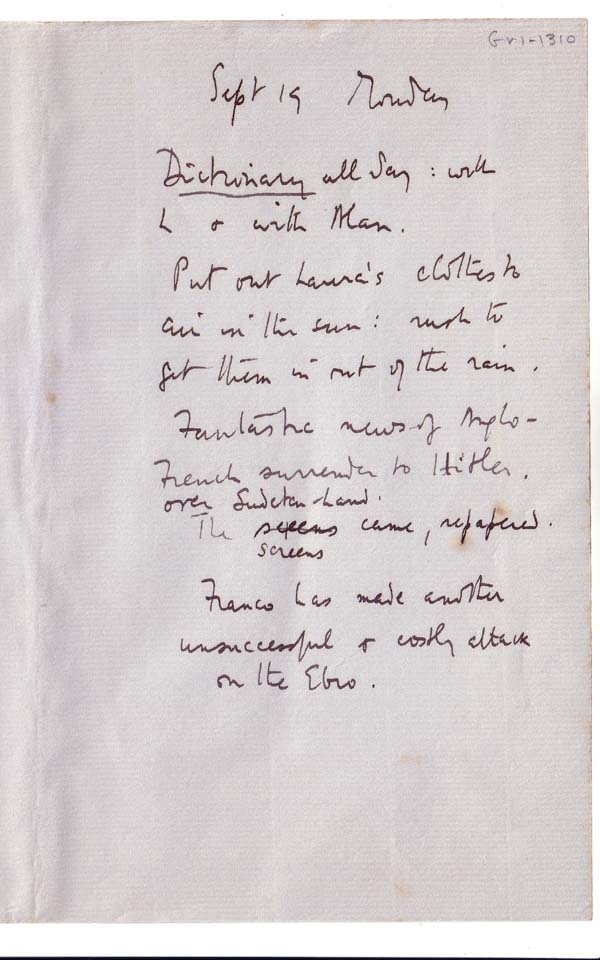 Gv1-1310
Sept 19 Monday
Dictionary all day : with
L & with Alan.
Put out Laura's clothes to
air in the sun : rush to
get them in out of the rain.
Fantastic news of Anglo-
French surrender to Hitler.
over Sudeten-Land.
The screens came, repapered.
screens
Franco has made another
unsuccessful & costly attack
on the Ebro.